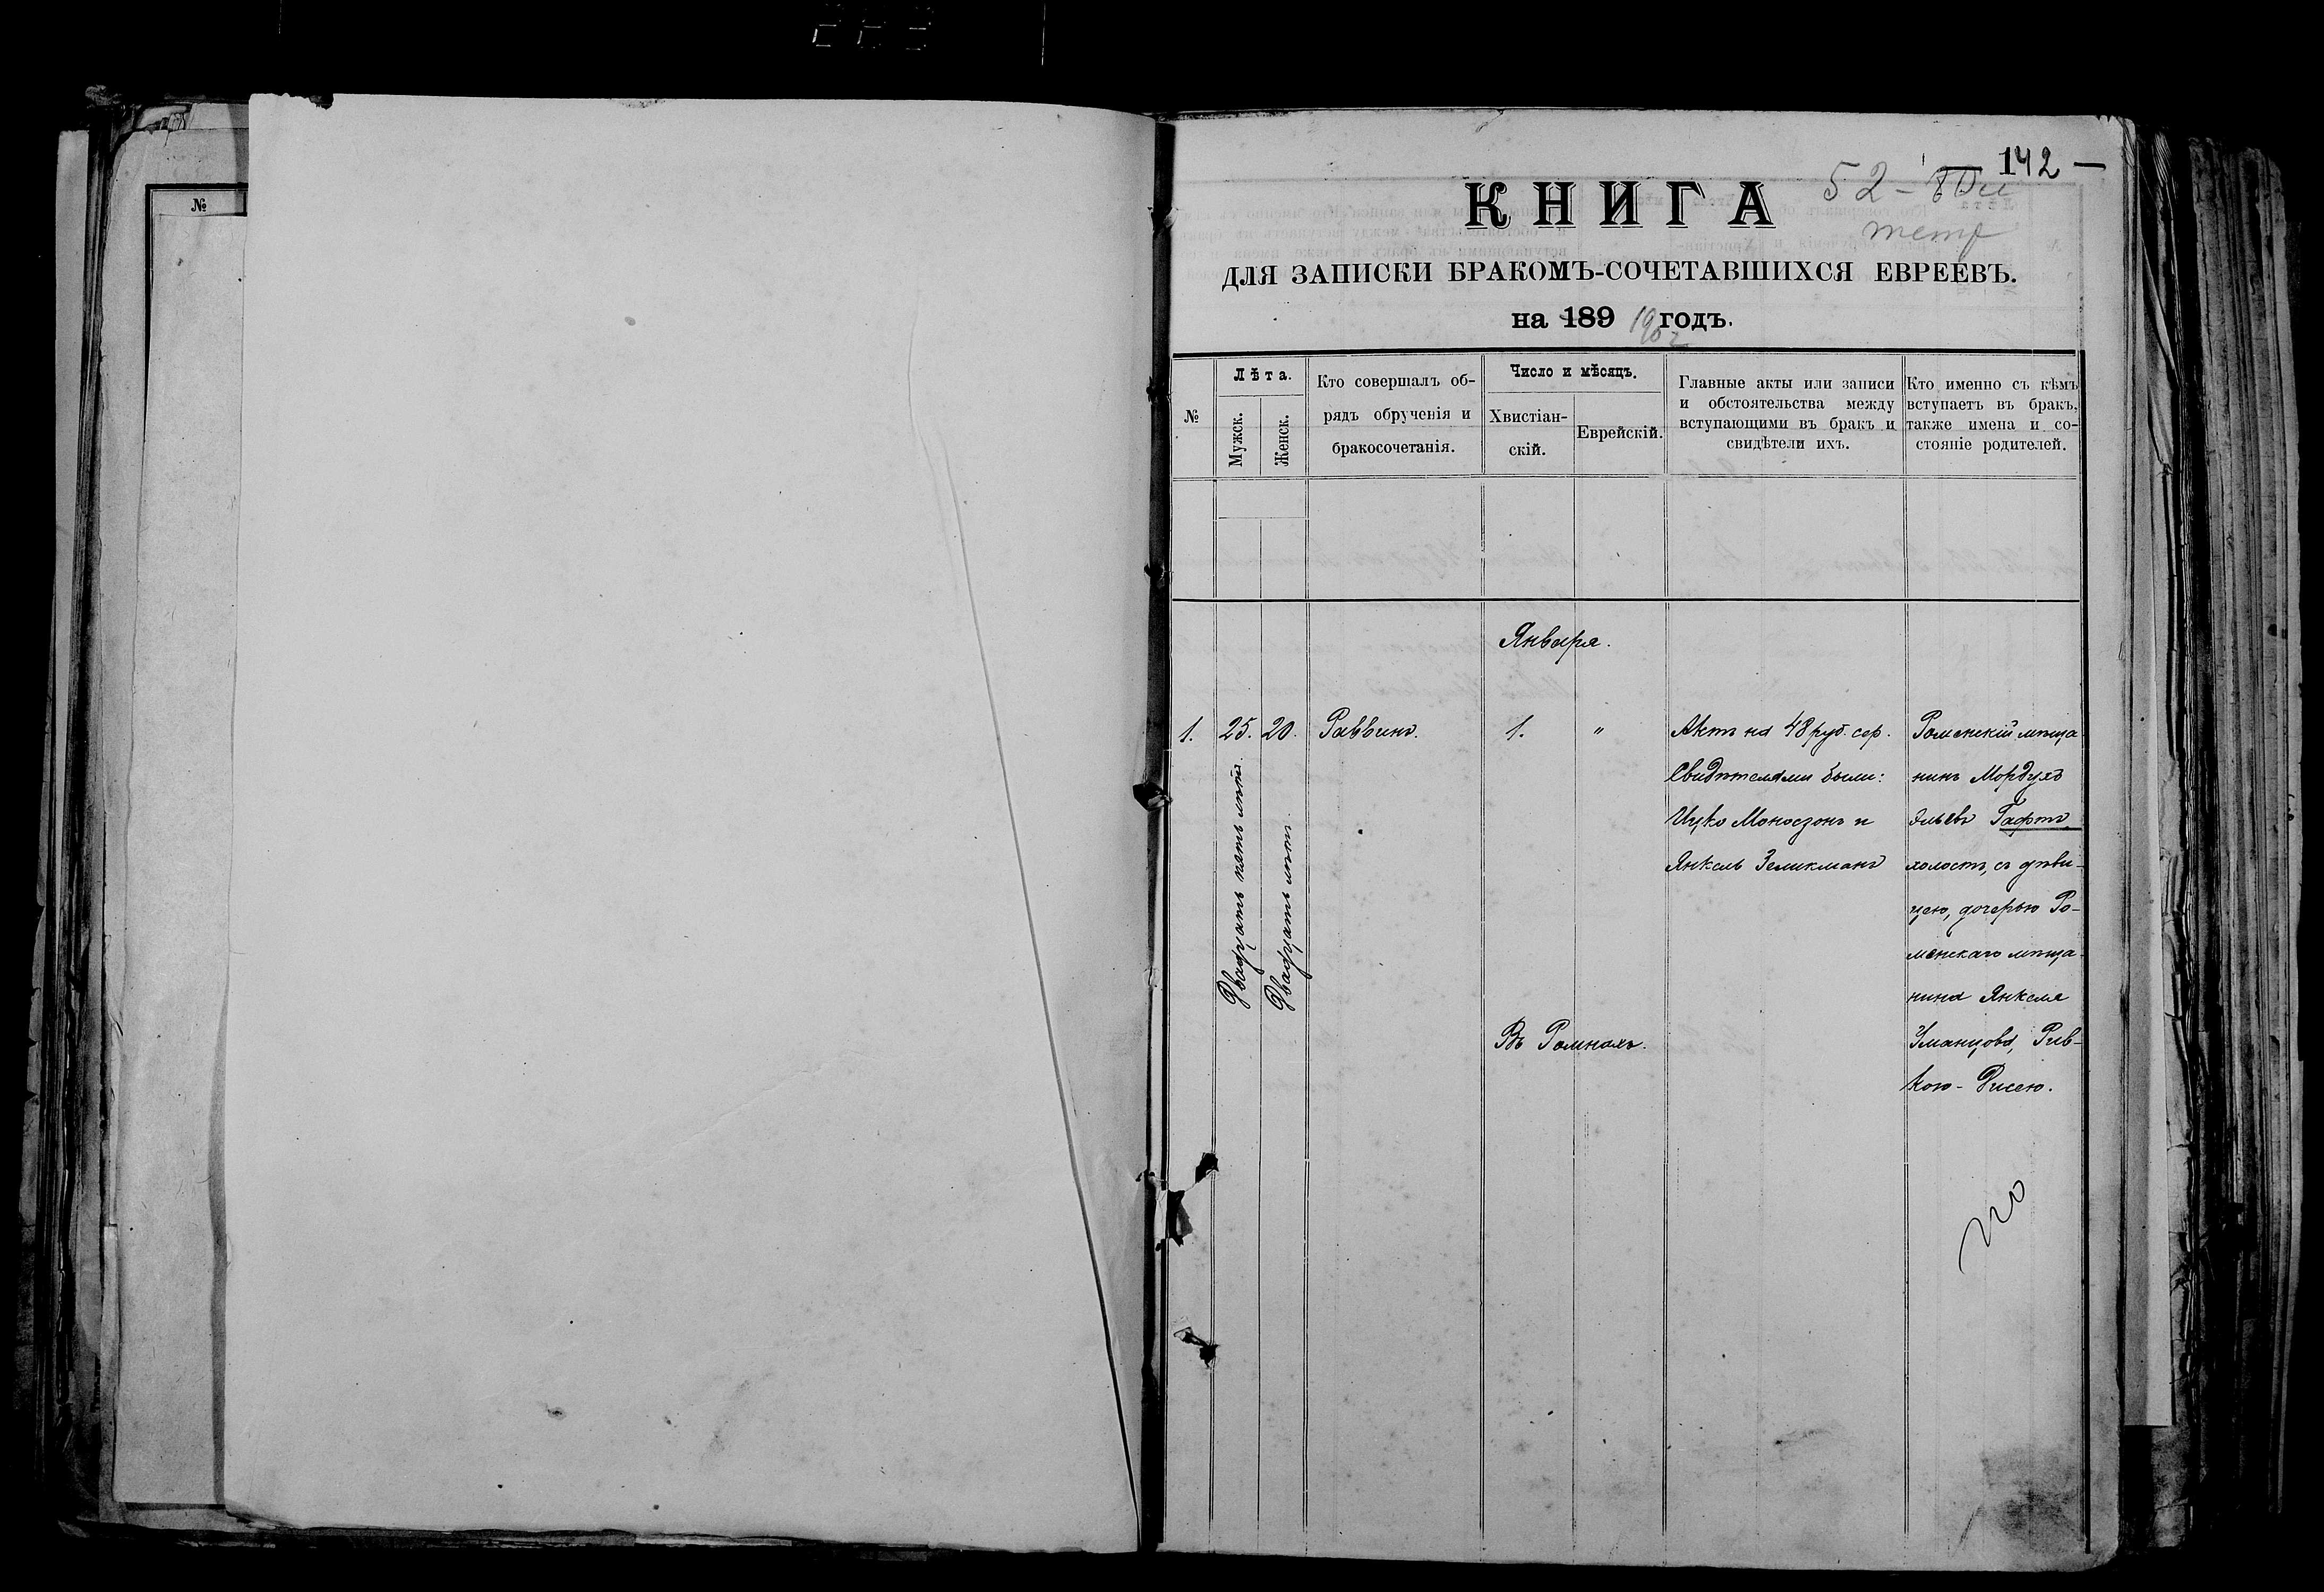 №
142 —
52 -
КНИГА
ДЛЯ ЗАПИСКИ БРАКОМЪ-СОЧЕТАВШИХСЯ ЕВРЕЕВЪ.
на 189 1902 годъ.
№
Лѣта.
Мужск.
Женск.
Кто совершалъ об-
рядъ обрученія и
бракосочетанія.
Число и мѣсяцъ.
Хвистіан-
скій.
Еврейскій.
Главные акты или записи
и обстоятельства между
вступающими въ бракъ и
свидѣтели ихъ.
Кто именно съ кѣмъ
вступаетъ въ бракъ,
также имена и со-
стояніе родителей.
Января.
1.
25.
Двадцать пять лѣтъ.
20.
Двадцать лѣтъ.
Раввинъ.
1.
"
Въ Ромнахъ.
Актъ на 48 руб. сер.
Свидѣтелями были:
Ицко Моносзонъ и
Янкель Зеликманъ
Роменскій мѣща-
нинъ Мордухъ
Эльевъ Гафтъ,
холостъ, съ дѣви-
цею, дочерью Ро-
менскаго мѣща-
нина Янкеля
Уманцова, Рив-
кою-Рисею.